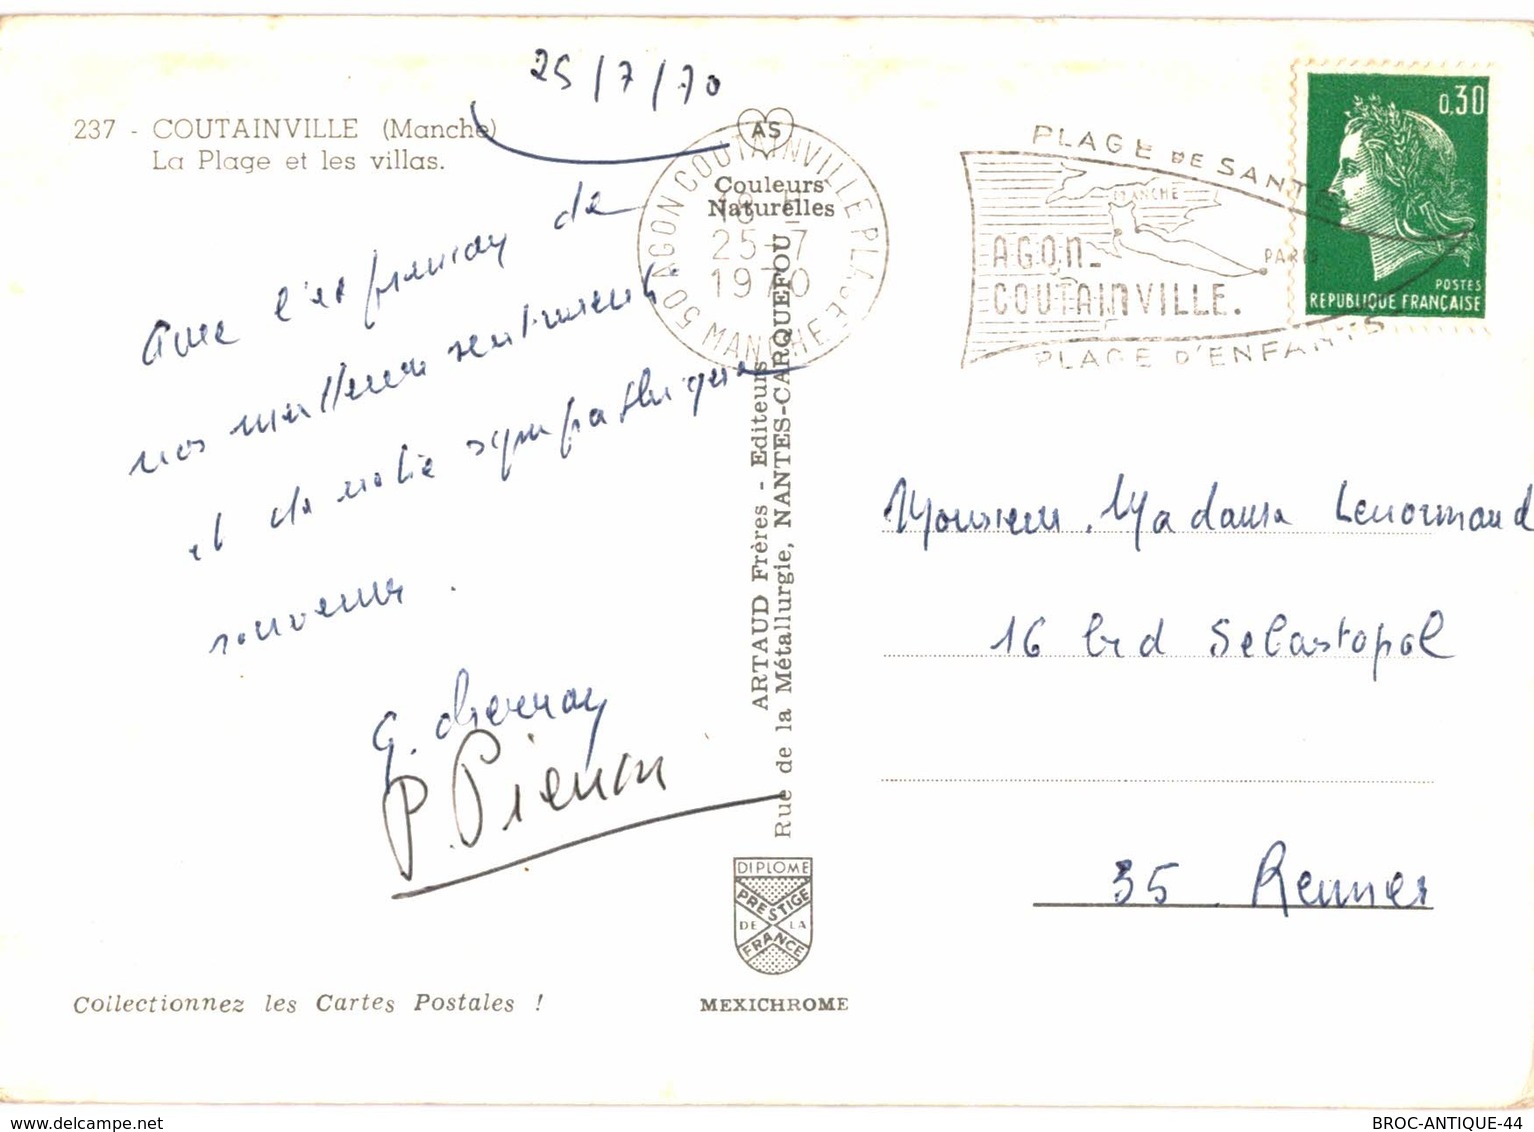 25/7/70
237 - COUTAINVILLE (Manche)
La Plage et les villas.
Avec l'expression de
nos meilleurs sentiments
et de notre sympathique
souvenir.
G. Chernay
P. Pierron
AS
Couleurs
Naturelles
50 AGON COUTAINVILLE PLAGE
MANCHE
18 H
25-7
1970
PLAGE DE SANTE
MANCHE
PARIS
AGON-
COUTAINVILLE.
PLAGE D'ENFANTS
0,30
POSTES
REPUBLIQUE FRANÇAISE
ARTAUD Frères - Editeurs
Rue de la Métallurgie, NANTES-CARQUEFOU
Monsieur, Madame Lenormand
16 bd Sebastopol
35 Rennes
DIPLOME
PRESTIGE
DE LA
FRANCE
Collectionnez les Cartes Postales !
MEXICHROME
www.delcampe.net
BROC-ANTIQUE-44